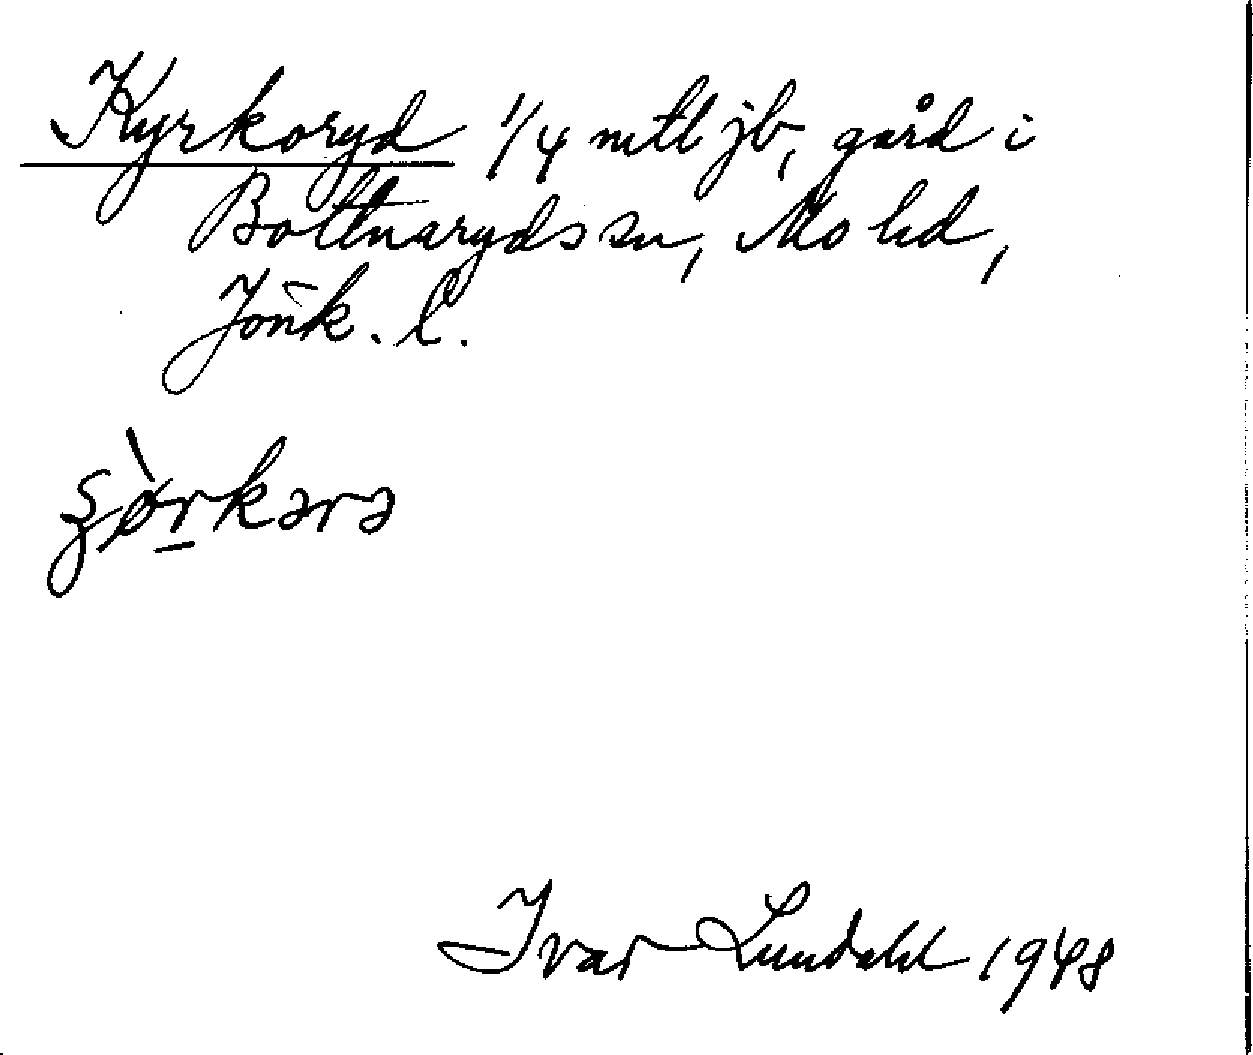 Kyrkoryd 1/4 mtl jb, gård i
Bottnaryds sn, Mo hd,
Jönk. l.
ʂø̀rkərə
Ivar Lundahl 1948